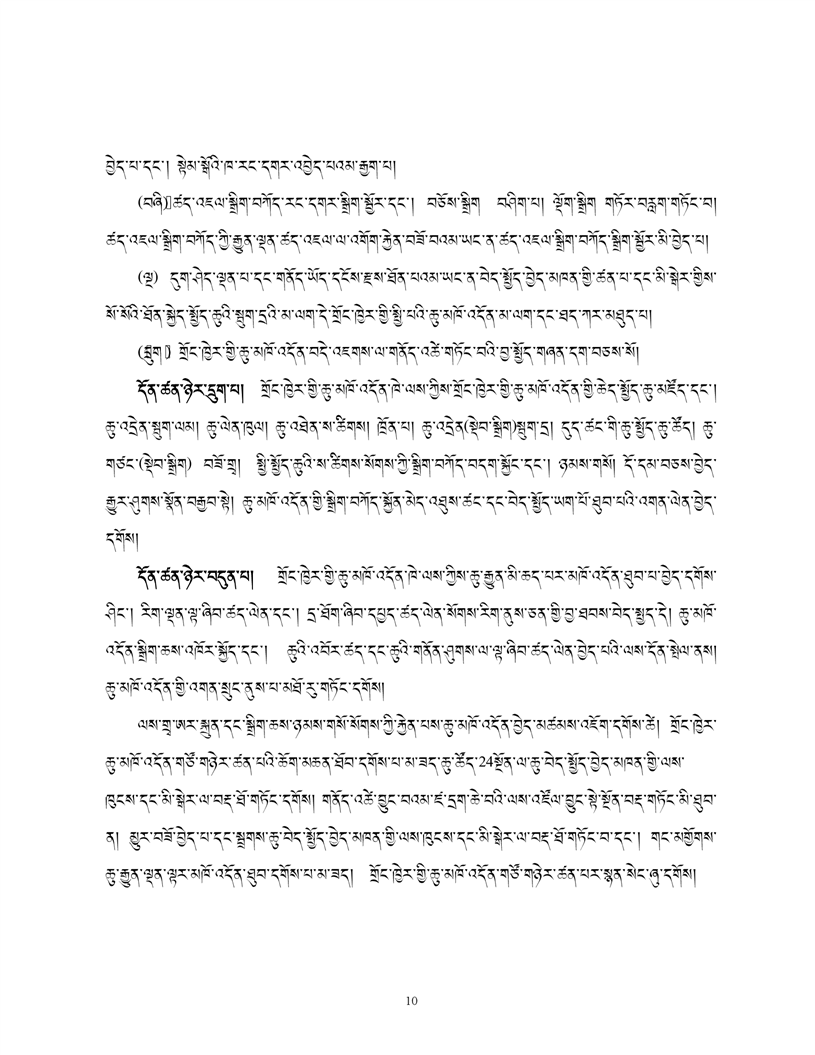 བྱེད་པ་དང་། སྟེམ་སྒོའི་ཁ་རང་དགར་འབྱེད་པའམ་རྒྱག་པ།
(བཞི)ཚད་འཇལ་སྒྲིག་བཀོད་རང་དགར་སྒྲིག་སྦྱོར་དང་། བཅོས་སྒྲིག བཤིག་པ། ལྡོག་སྒྲིག གཏོར་བརླག་གཏོང་བ།
ཚད་འཇལ་སྒྲིག་བཀོད་ཀྱི་རྒྱུན་ལྡན་ཚད་འཇལ་ལ་འགོག་རྐྱེན་བཟོ་བའམ་ཡང་ན་ཚད་འཇལ་སྒྲིག་བཀོད་སྒྲིག་སྦྱོར་མི་བྱེད་པ།
(ལྔ) དུག་ཤེད་ལྡན་པ་དང་གནོད་ཡོད་དངོས་རྫས་ཐོན་པའམ་ཡང་ན་བེད་སྤྱོད་བྱེད་མཁན་གྱི་ཚན་པ་དང་མི་སྒེར་གྱིས་
སོ་སོའི་ཐོན་སྐྱེད་སྤྱོད་ཆུའི་སྦུག་དྲའི་མ་ལག་དེ་གྲོང་ཁྱེར་གྱི་སྤྱི་པའི་ཆུ་མཁོ་འདོན་མ་ལག་དང་ཐད་ཀར་མཐུད་པ།
(དྲུག) གྲོང་ཁྱེར་གྱི་ཆུ་མཁོ་འདོན་བདེ་འཇགས་ལ་གནོད་འཚེ་གཏོང་བའི་བྱ་སྤྱོད་གཞན་དག་བཅས་སོ།
དོན་ཚན་ཉེར་དྲུག་པ། གྲོང་ཁྱེར་གྱི་ཆུ་མཁོ་འདོན་ཁེ་ལས་ཀྱིས་གྲོང་ཁྱེར་གྱི་ཆུ་མཁོ་འདོན་གྱི་ཆེད་སྤྱོད་ཆུ་མཛོད་དང་།
ཆུ་འདྲེན་སྦུག་ལམ། ཆུ་ལེན་ཁུལ། ཆུ་འཐེན་ས་ཚིགས། ཁྲོན་པ། ཆུ་འདྲེན(སྡེབ་སྒྲིག)སྦུག་དྲ། དུད་ཚང་གི་ཆུ་སྤྱོད་ཆུ་ཚོད། ཆུ་
གཙང་(སྡེབ་སྒྲིག) བཟོ་གྲྭ། སྤྱི་སྤྱོད་ཆུའི་ས་ཚིགས་སོགས་ཀྱི་སྒྲིག་བཀོད་བདག་སྐྱོང་དང་། ཉམས་གསོ། དོ་དམ་བཅས་བྱེད་
རྒྱུར་ཤུགས་སྣོན་བརྒྱབ་སྟེ། ཆུ་མཁོ་འདོན་གྱི་སྒྲིག་བཀོད་སྐྱོན་མེད་འཐུས་ཚང་དང་བེད་སྤྱོད་ཡག་པོ་ཐུབ་པའི་འགན་ལེན་བྱེད་
དགོས།
དོན་ཚན་ཉེར་བདུན་པ། གྲོང་ཁྱེར་གྱི་ཆུ་མཁོ་འདོན་ཁེ་ལས་ཀྱིས་ཆུ་རྒྱུན་མི་ཆད་པར་མཁོ་འདོན་ཐུབ་པ་བྱེད་དགོས་
ཤིང་། རིག་ལྡན་ལྟ་ཞིབ་ཚད་ལེན་དང་། དྲ་ཐོག་ཞིབ་དཔྱད་ཚད་ལེན་སོགས་རིག་ནུས་ཅན་གྱི་བྱ་ཐབས་བེད་སྤྱད་དེ། ཆུ་མཁོ་
འདོན་སྒྲིག་ཆས་འཁོར་སྐྱོད་དང་། ཆུའི་འབོར་ཚད་དང་ཆུའི་གནོན་ཤུགས་ལ་ལྟ་ཞིབ་ཚད་ལེན་བྱེད་པའི་ལས་དོན་སྤེལ་ནས།
ཆུ་མཁོ་འདོན་གྱི་འགན་སྲུང་ནུས་པ་མཐོ་རུ་གཏོང་དགོས།
ལས་གྲྭ་ཨར་སྐྲུན་དང་སྒྲིག་ཆས་ཉམས་གསོ་སོགས་ཀྱི་རྐྱེན་པས་ཆུ་མཁོ་འདོན་བྱེད་མཚམས་འཇོག་དགོས་ཚེ། གྲོང་ཁྱེར་
ཆུ་མཁོ་འདོན་གཙོ་གཉེར་ཚན་པའི་ཆོག་མཆན་ཐོབ་དགོས་པ་མ་ཟད་ཆུ་ཚོད་24སྔོན་ལ་ཆུ་བེད་སྤྱོད་བྱེད་མཁན་གྱི་ལས་
ཁུངས་དང་མི་སྒེར་ལ་བརྡ་ཐོ་གཏོང་དགོས། གནོད་འཚེ་བྱུང་བའམ་ཛ་དྲག་ཆེ་བའི་ལས་འཛོལ་བྱུང་སྟེ་སྔོན་བརྡ་གཏོང་མི་ཐུབ་
ན། མྱུར་བཟོ་བྱེད་པ་དང་སྦྲགས་ཆུ་བེད་སྤྱོད་བྱེད་མཁན་གྱི་ལས་ཁུངས་དང་མི་སྒེར་ལ་བརྡ་ཐོ་གཏོང་བ་དང་། གང་མགྱོགས་
ཆུ་རྒྱུན་ལྡན་ལྟར་མཁོ་འདོན་ཐུབ་དགོས་པ་མ་ཟད། གྲོང་ཁྱེར་གྱི་ཆུ་མཁོ་འདོན་གཙོ་གཉེར་ཚན་པར་སྙན་སེང་ཞུ་དགོས།
10